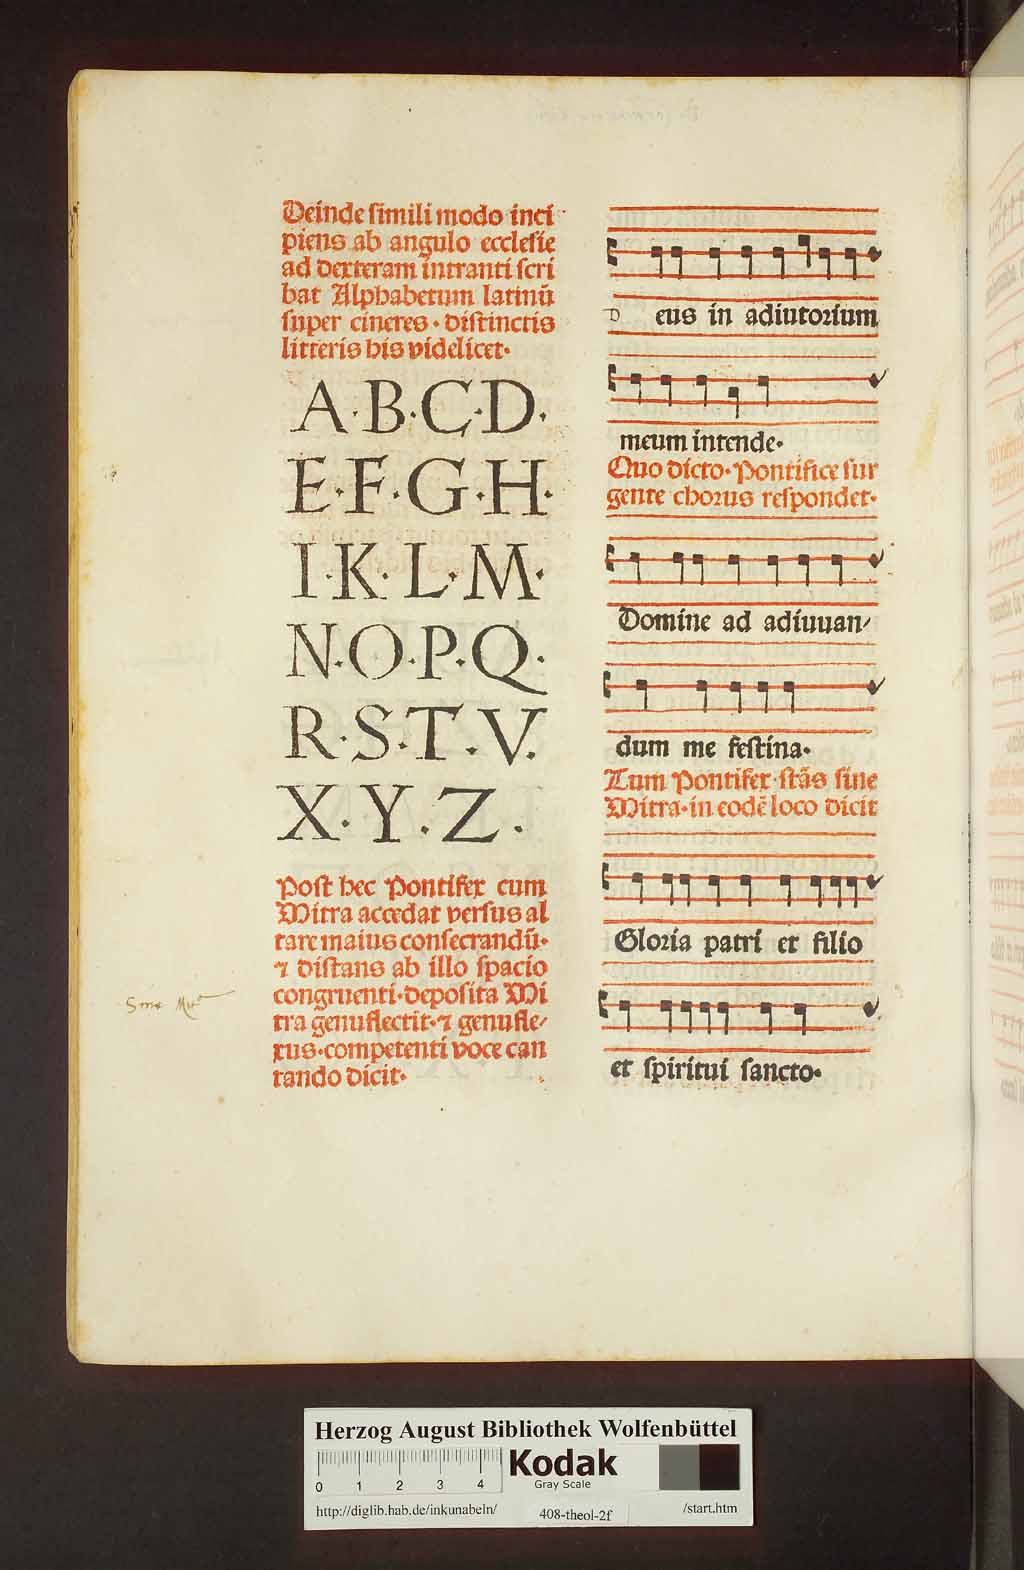 Deinde simili modo inci
piens ab angulo ecclesie
ad dexteram intranti scri
bat Alphabetum latinū
super cineres · distinctis
litteris his videlicet·
A·B·C·D·
E·F·G·H·
I·K·L·M·
N·O·P·Q·
R·S·T·V·
X·Y·Z·
Post hec Pontifex cum
Mitra accedat versus al
tare maius consecrandū·
⁊ distans ab illo spacio
congruenti·deposita Mi
tra genuflectit·⁊ genufle/
xus·competenti voce can
tando dicit·
D eus in adiutorium
meum intende·
Quo dicto·Pontifice sur
gente chorus respondet·
Domine ad adiuuan/
dum me festina·
Tum Pontifex stās sine
Mitra·in eodē loco dicit
Gloria patri et filio
et spiritui sancto·
Herzog August Bibliothek Wolfenbüttel
0 1 2 3 4
Kodak
Gray Scale
http://diglib.hab.de/inkunabeln/
408-theol-2f
/start.htm